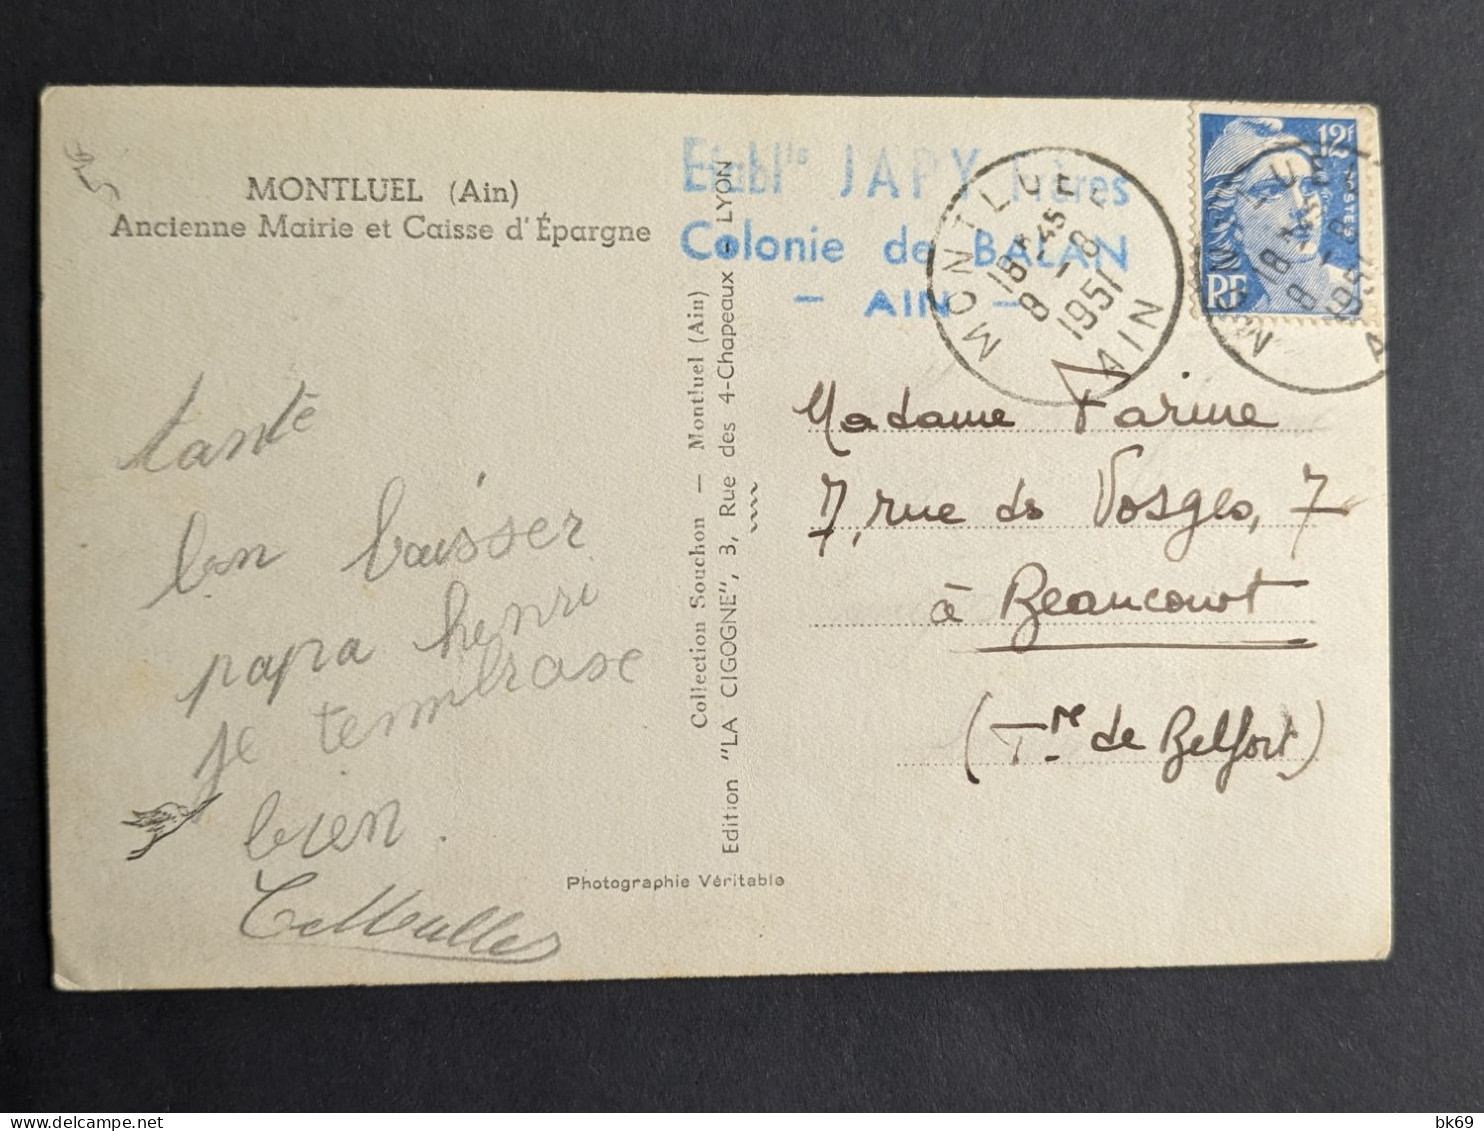 MONTLUEL (Ain)
Ancienne Mairie et Caisse d'Épargne
tante
bon baisser
papa henri
je tembrase
bien.
Collection Souchon — Montluel (Ain)
Edition "LA CIGOGNE", 3, Rue des 4-Chapeaux - LYON
Photographie Véritable
Etabl.ts JAPY Frères
Colonie de BALAN
- AIN -
MONTLUEL
18 H 45
8 - 8
1951
AIN
12F
POSTES
RF
18 H 45
8 - 8
1951
Madame
7, rue des Vosges, 7
à Beaucourt
(Tre de Belfort)
bk69